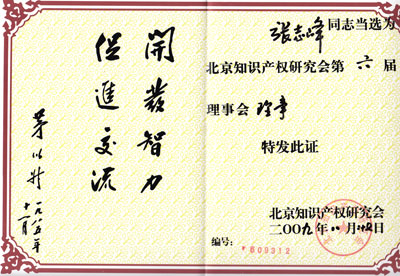 開發智力
促進交流
茅以升
一九八五年
十一月
张志峰同志当选为
北京知识产权研究会第六届
理事会理事
特发此证
北京知识产权研究会
二00九年八月日
编号：